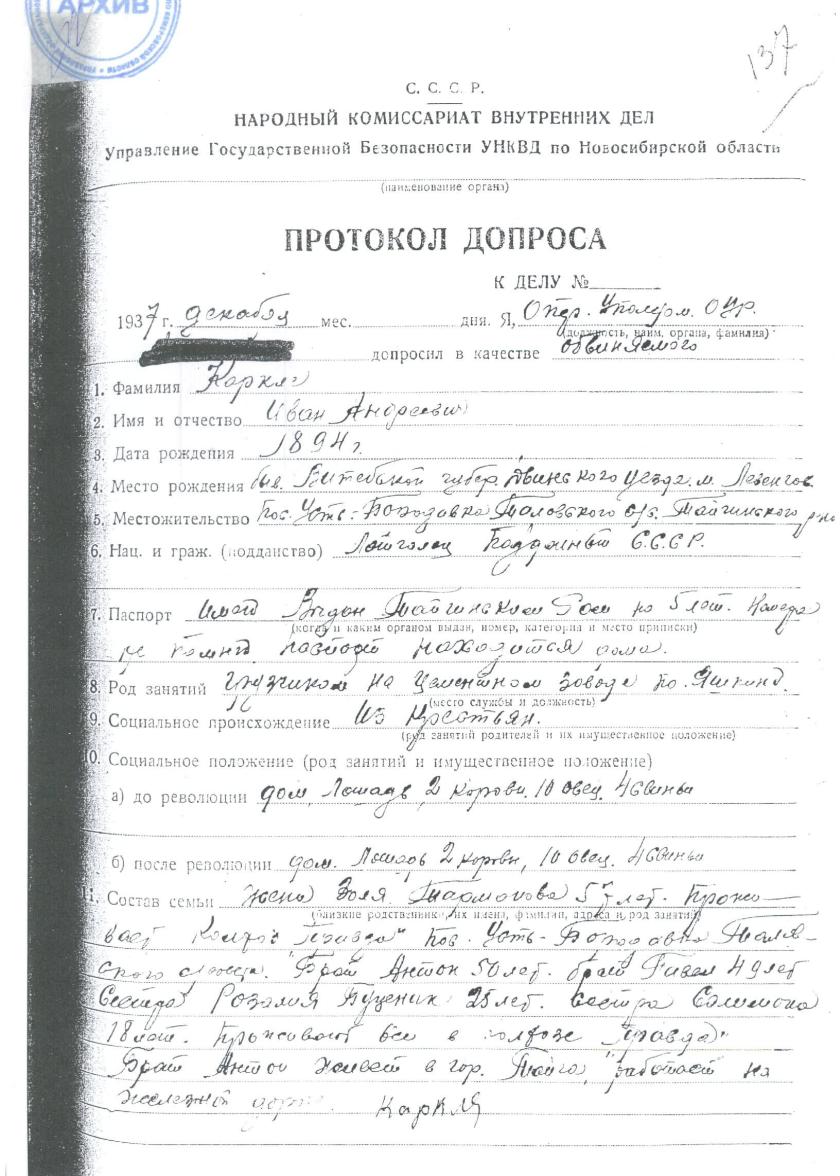 АРХИВ
137
С. С. С. Р.
НАРОДНЫЙ КОМИССАРИАТ ВНУТРЕННИХ ДЕЛ
Управление Государственной Безопасности УНКВД по Новосибирской области
(наименование органа)
ПРОТОКОЛ ДОПРОСА
К ДЕЛУ №
1937 г. декабря мес. дня. Я, Опер.
(должность, наим. органа, фамилия)
допросил в качестве обвиняемого
1. Фамилия Каркля
2. Имя и отчество Иван Андреевич
3. Дата рождения 1894 г.
4. Место рождения быв. Витебской губер. Двинского уезда. м.
5. Местожительство Пос. Усть- Таловского с/с. Тайгинского р-на
6. Нац. и граж. (подданство) С.С.С.Р.
7. Паспорт имел Выдан Тайгинским на 5 лет.
(когда и каким органом выдан, номер, категория и место приписки)
не помнит. паспорт находится дома.
8. Род занятий грузчиком на цементном заводе
(место службы и должность)
9. Социальное происхождение Из крестьян.
(род занятий родителей и их имущественное положение)
10. Социальное положение (род занятий и имущественное положение)
а) до революции дом, Лошадь, 2 коровы. 10 овец. 4 свиньи
б) после революции дом. Лошадь 2 коровы, 10 овец. 4 свиньи
11. Состав семьи Жена 57 лет. Прожи-
(близкие родственники, их имена, фамилии, адреса и род занятий)
вает Колхоз "Правда" Пос. Усть- Талов-
ского Брат Антон 50 лет. брат 49 лет
Сестра Розалия 25 лет. сестра
18 лет. Проживают все в колхозе "Правда"
Брат Антон живет в гор. Тайга, работает на
железной дороге. Каркля